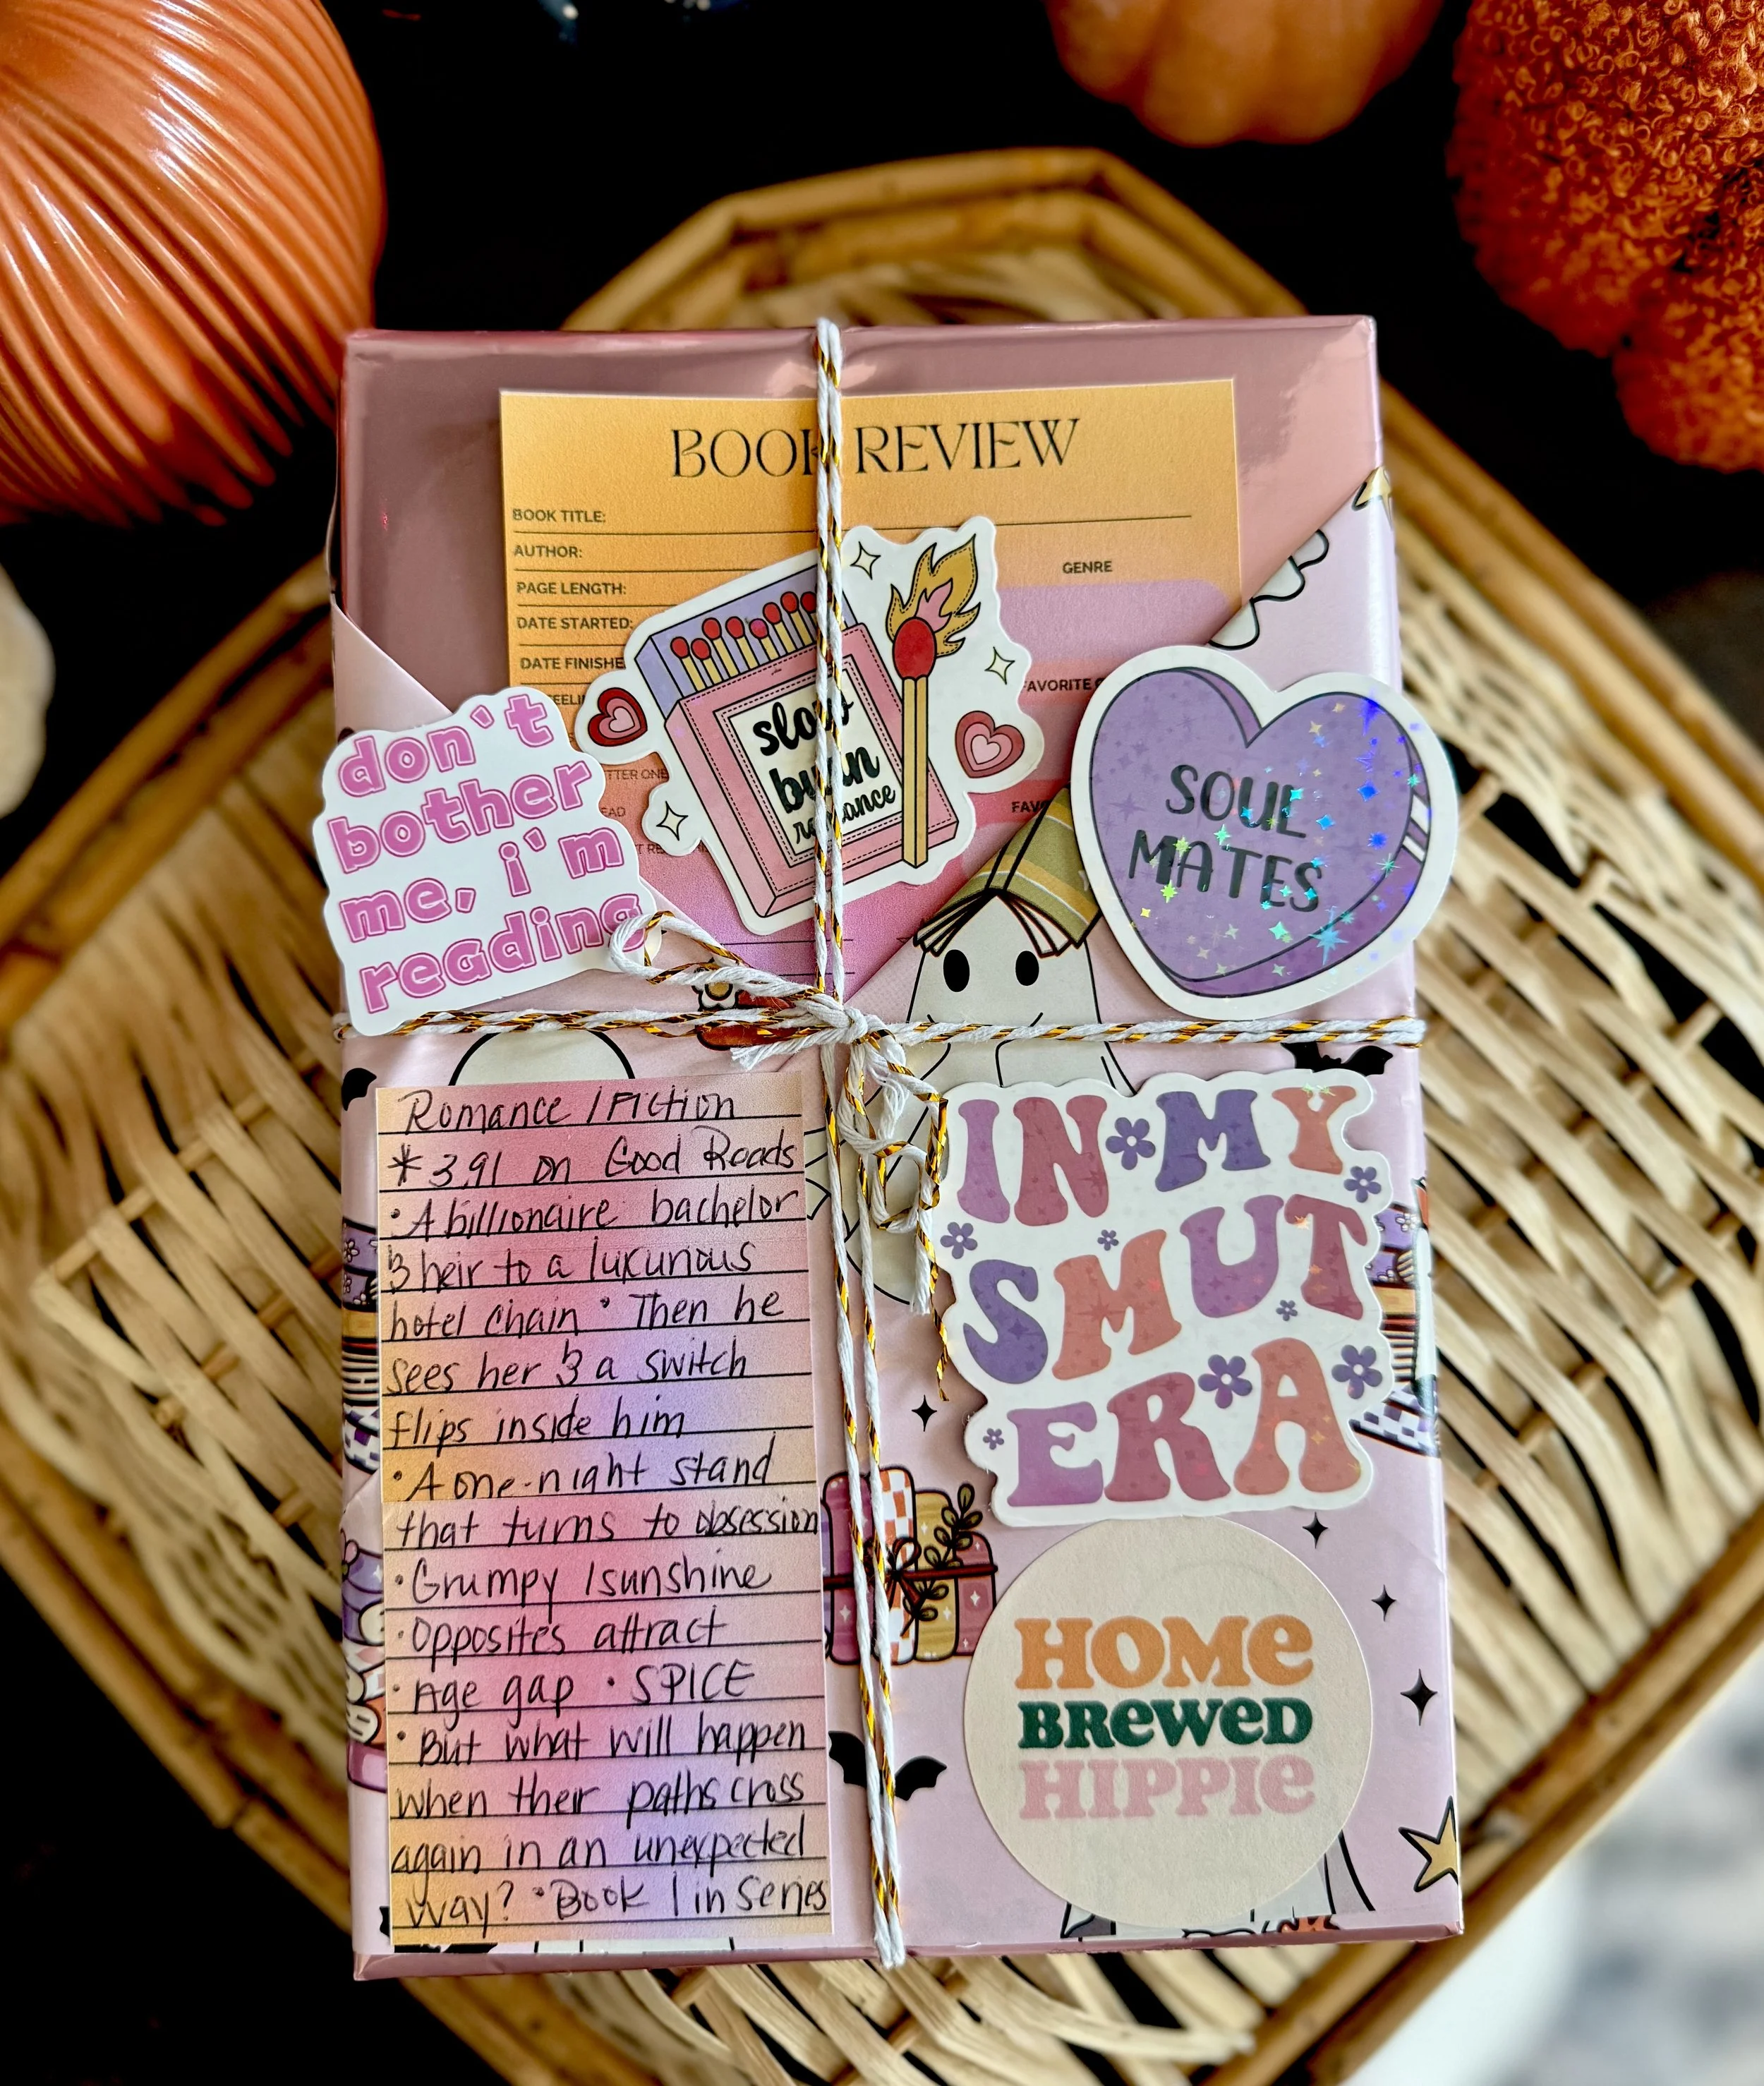 BOOK REVIEW
BOOK TITLE:
AUTHOR:
GENRE
PAGE LENGTH:
DATE STARTED:
DATE FINISHE
FAVORITE
slow
burn
romance
don't
bother
me, i'm
reading
SOUL
MATES
TTER ONE
FAV
Romance / Fiction
* 3.91 on Good Reads
• A billionaire bachelor
& heir to a luxurious
hotel chain • Then he
sees her & a switch
flips inside him
• A one-night stand
that turns to obsession
• Grumpy / sunshine
• Opposites attract
• Age gap • SPICE
• But what will happen
when their paths cross
again in an unexpected
way? • Book 1 in Series
IN MY
SMUT
ERA
HOME
BREWED
HIPPIE